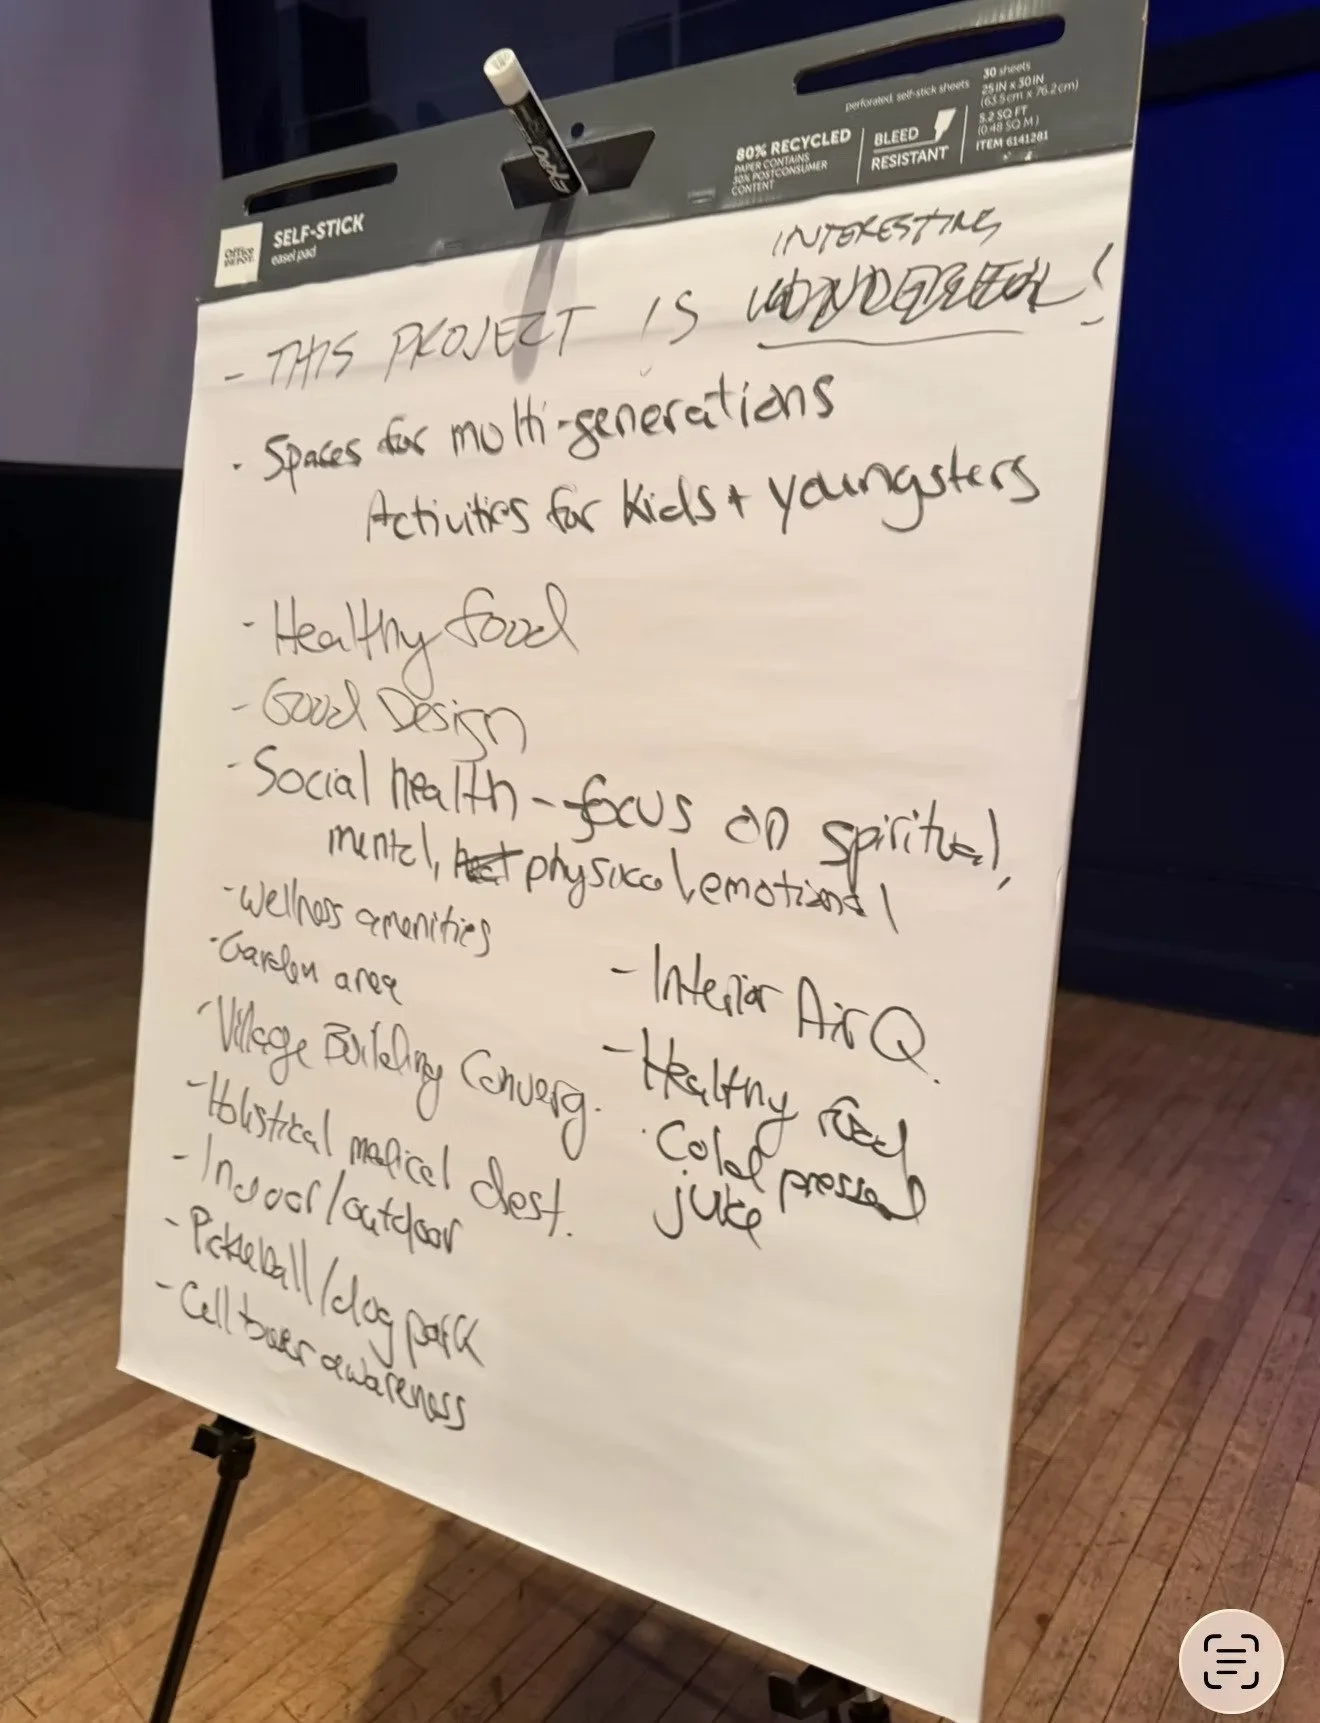 30 sheets
perforated, self-stick sheets
25 IN x 30 IN
(63.5 cm x 76.2 cm)
5.2 SQ FT
(0.48 SQ M)
ITEM 6141281
80% RECYCLED
PAPER CONTAINS
30% POSTCONSUMER
CONTENT
BLEED
RESISTANT
Office
DEPOT
SELF-STICK
easel pad
EXPO
INTERESTING
- THIS PROJECT IS !
· Spaces for multi-generations
Activities for Kids + youngsters
- Healthy food
- Good Design
- Social health - focus on spiritual,
mental, physical, emotional
- Wellness amenities
- Garden area
- Village Building Converg.
- Holistical medical dest.
- Indoor/outdoor
- Pickleball/dog park
- Cell tower awareness
- Interior Air Q.
- Healthy food
· Cold pressed
juice